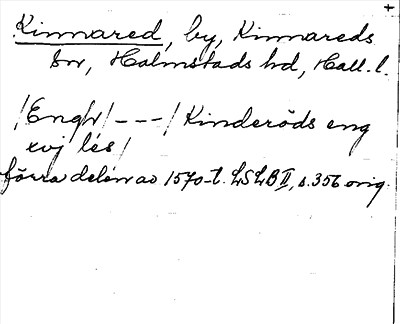 Kinnared, by, Kinnareds
sn, Halmstads hd, Hall. l.
/Engh/ - - - / Kinderöds eng
xvj les/
förra delen av 1570-t. LSLB II, s. 356 orig.